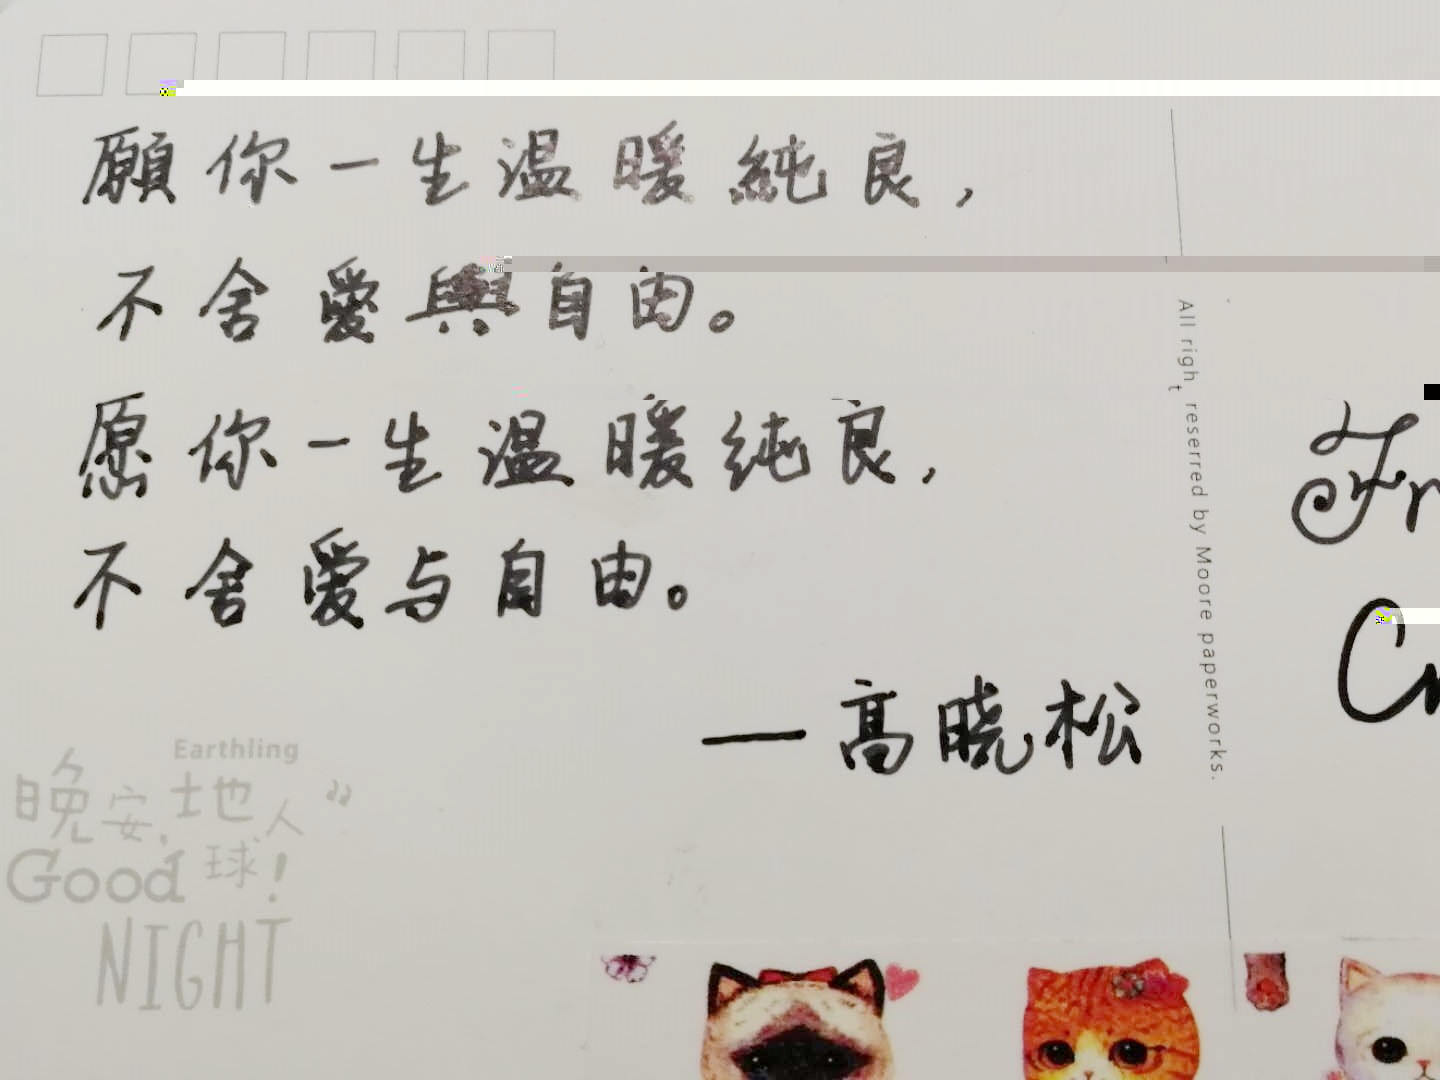 願你一生温暖純良，
不舍愛與自由。
愿你一生温暖纯良，
不舍爱与自由。
—高晓松
All right reserred by Moore paperworks.
Fr
Earthling
晚安，地
球人
Good
！
NIGHT